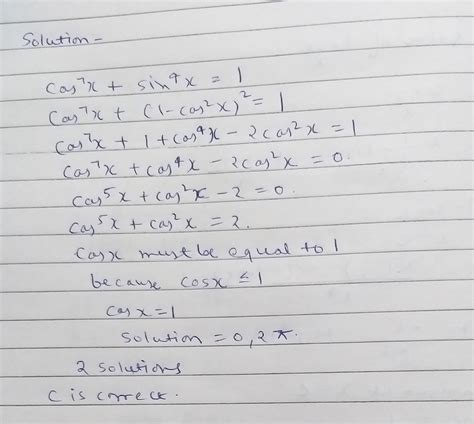 Solution -
cos⁷x + sin⁴x = 1
cos⁷x + (1-cos²x)² = 1
cos⁷x + 1 + cos⁴x - 2cos²x = 1
cos⁷x + cos⁴x - 2cos²x = 0.
cos⁵x + cos²x - 2 = 0.
cos⁵x + cos²x = 2.
cosx must be equal to 1
because cosx ≤ 1
cosx = 1
Solution = 0, 2π.
2 solutions
C is correct.